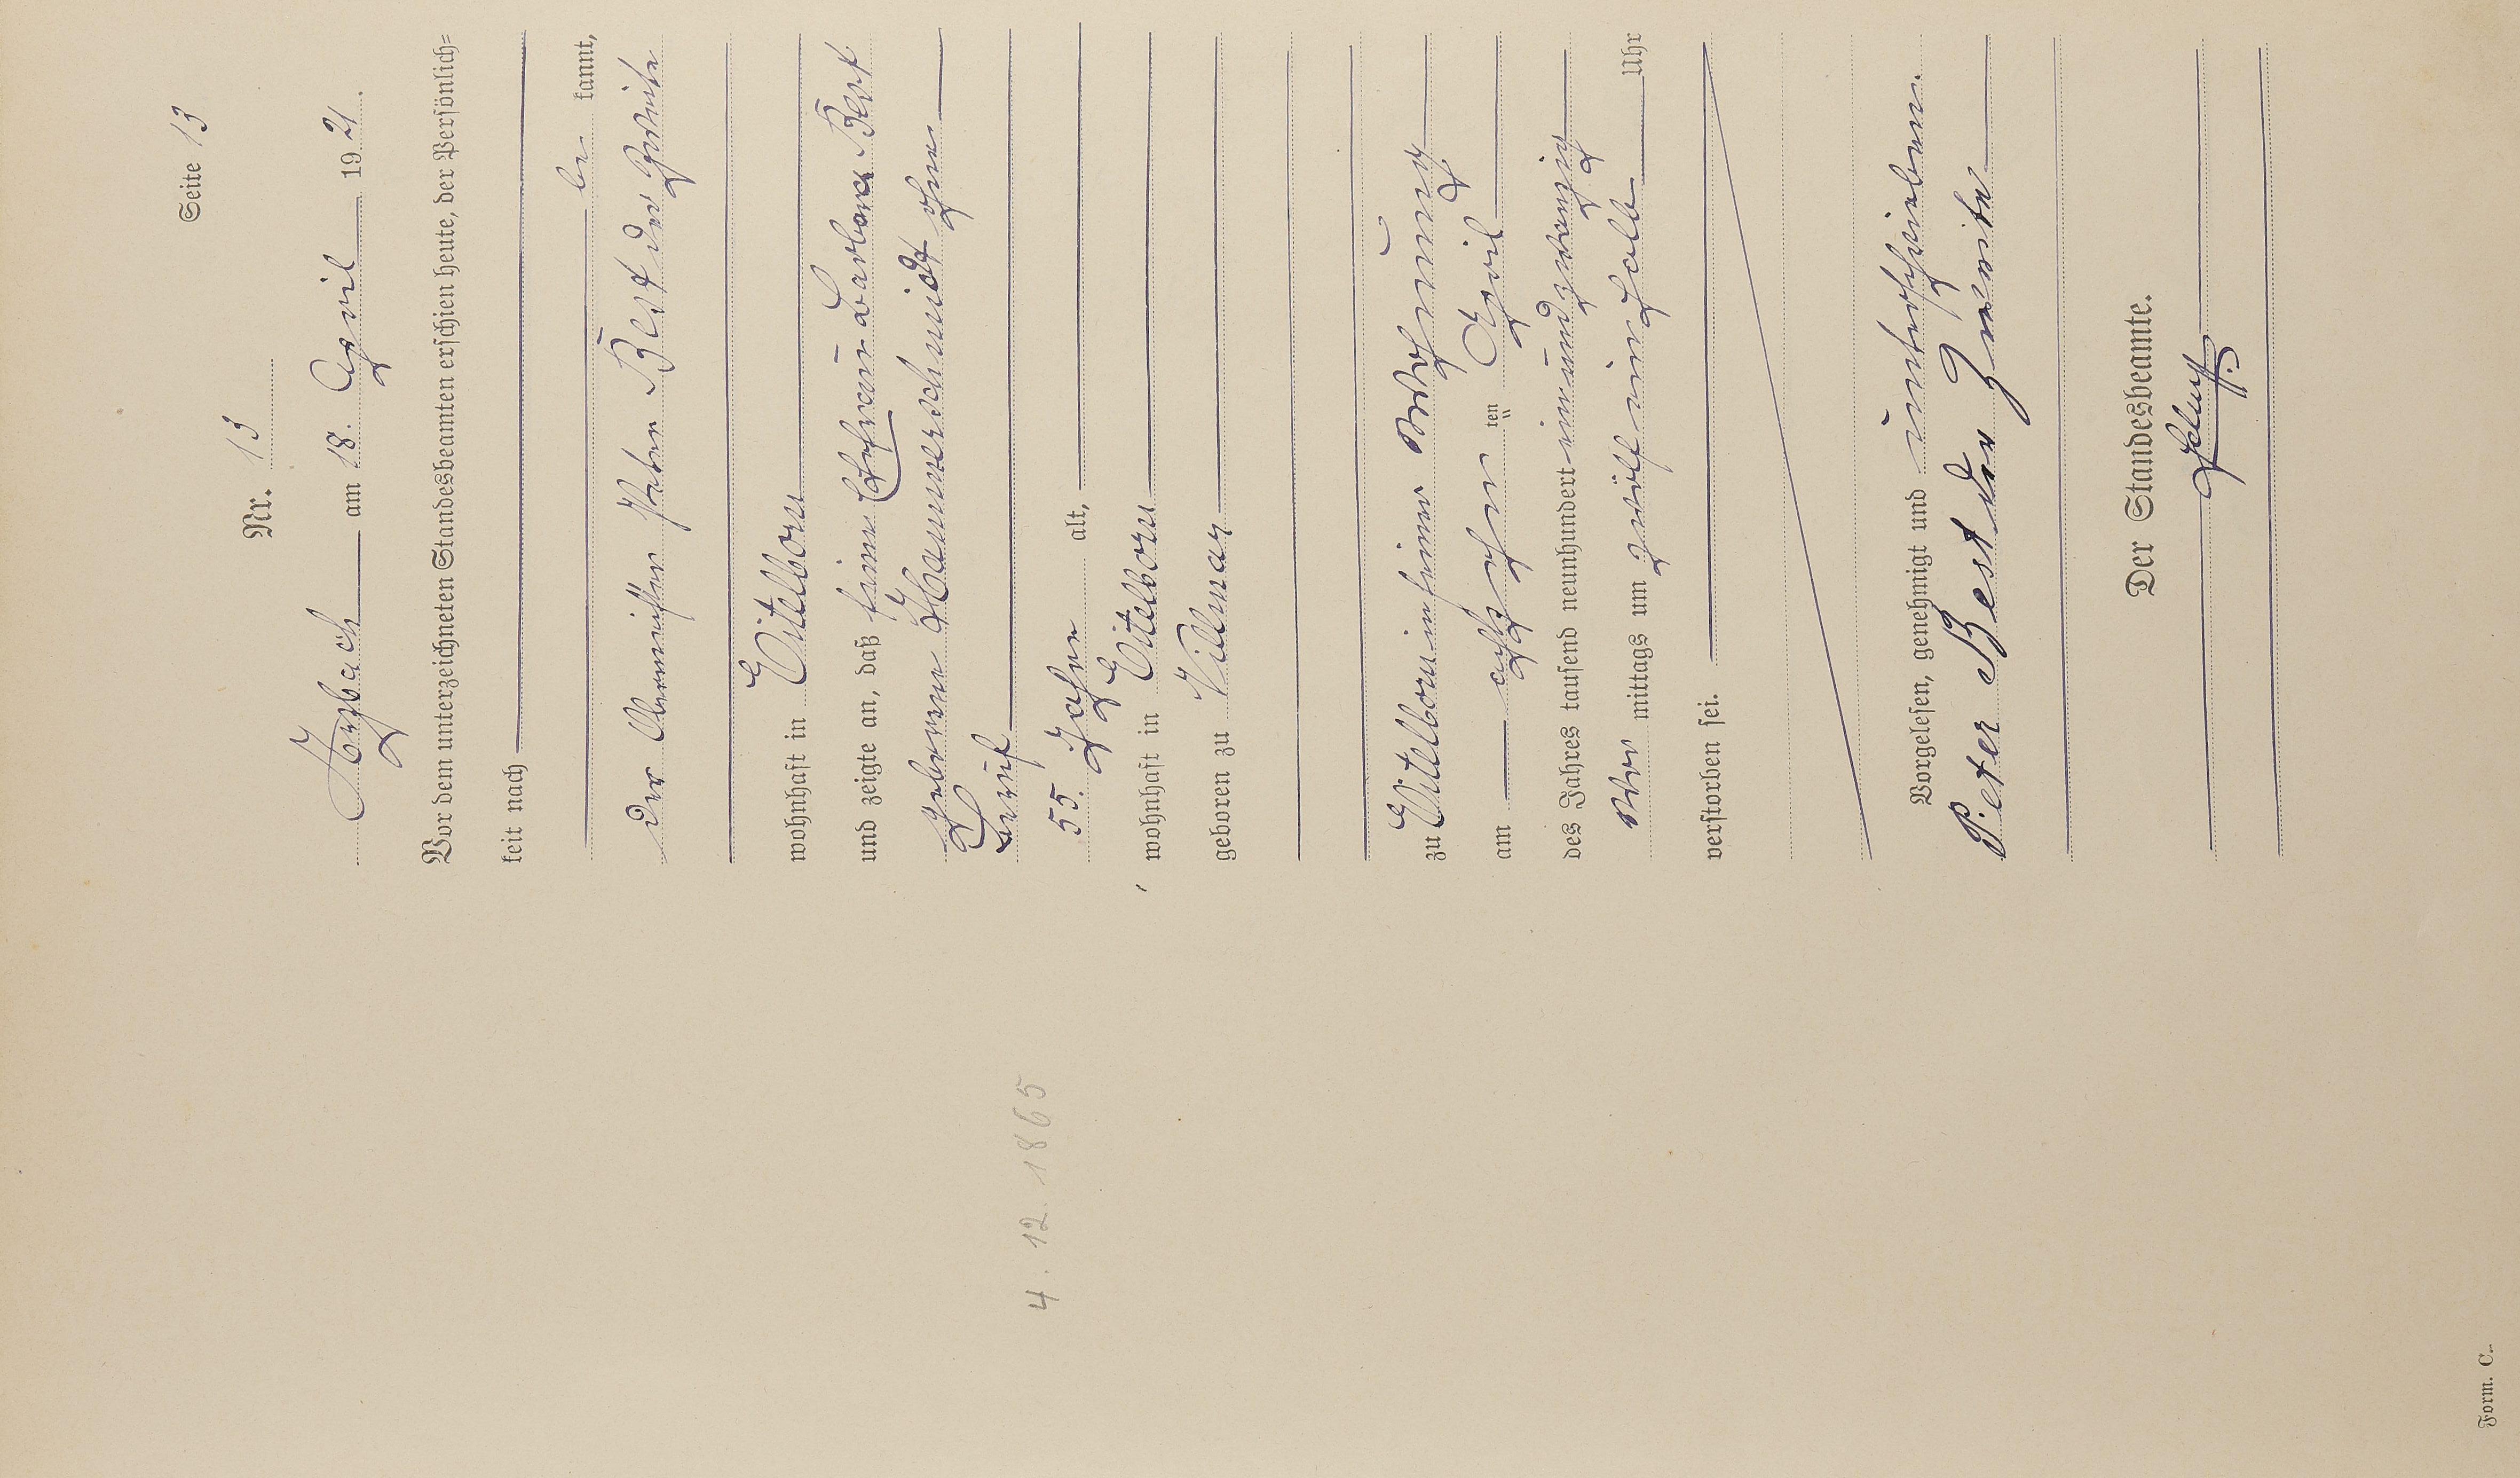 Seite 13
Nr. 13
Arzbach am 18. April 1921.
Vor dem unterzeichneten Standesbeamten erschien heute, der Persönlich=
keit nach
be kannt,
der Peter Best der Zweite
wohnhaft in Eitelborn
und zeigte an, daß seine Ehefrau Barbara Best
geborene Hammerschmidt ohne
Beruf
55 Jahre alt,
wohnhaft in Eitelborn
geboren zu Villmar
zu Eitelborn in seiner Wohnung
am achtzehnten April
des Jahres tausend neunhundert einundzwanzig
vor mittags um zwölf einhalb Uhr
verstorben sei.
Vorgelesen, genehmigt und unterschrieben.
Peter Best der Zweite
Der Standesbeamte.
4. 12. 1865
Form. C.